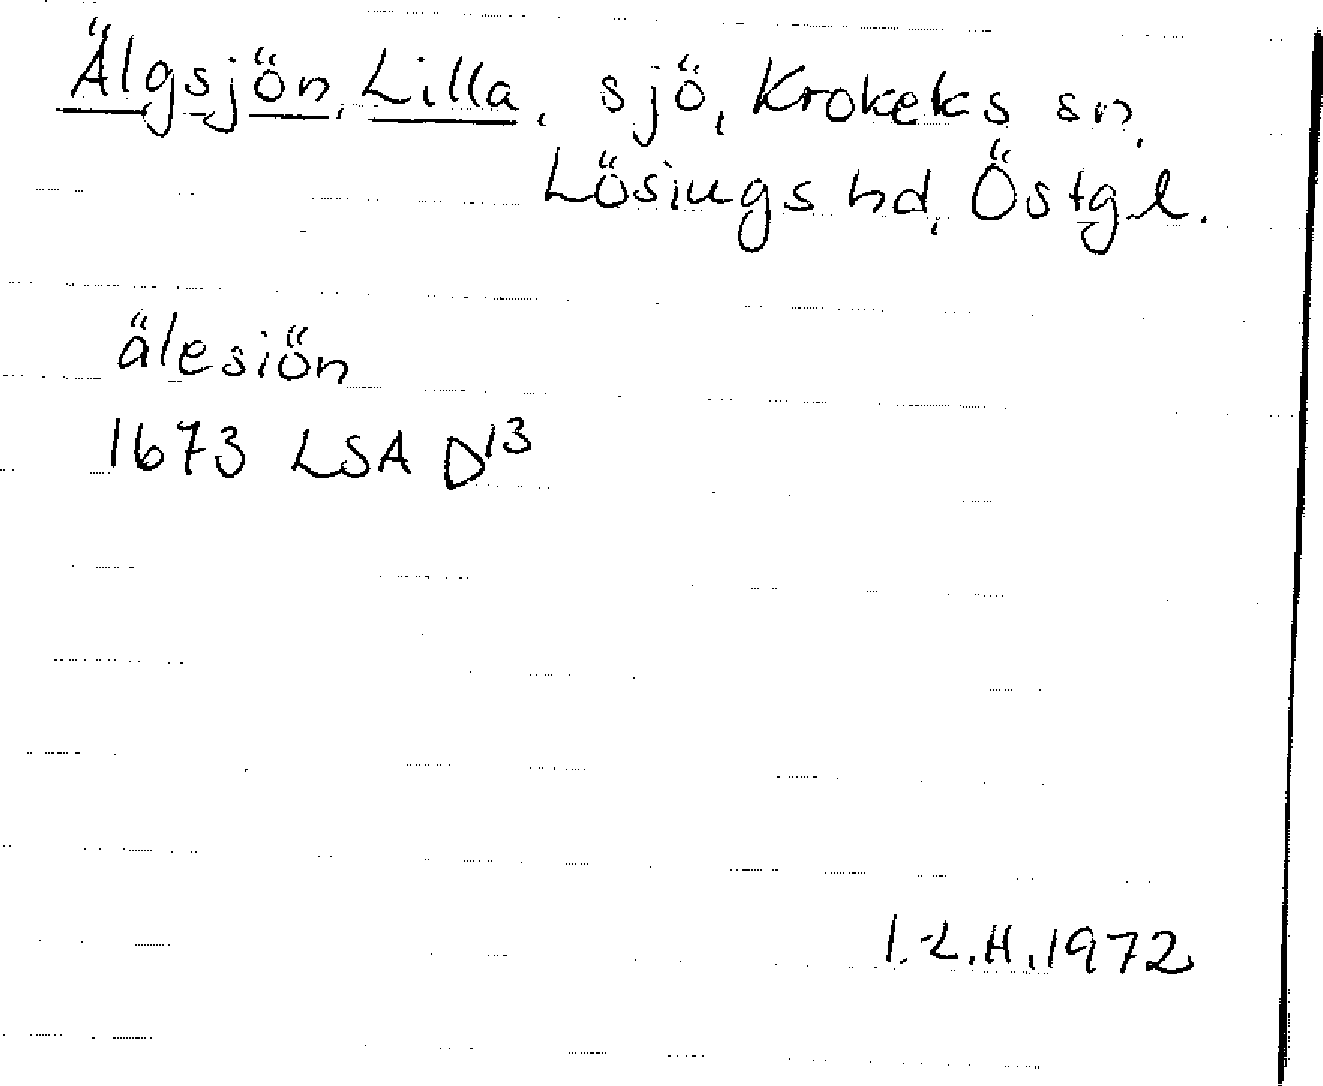 Älgsjön, Lilla, sjö, Krokeks sn,
Lösings hd, Östgl.
älesiön
1673 LSA D13
I.-L.H. 1972